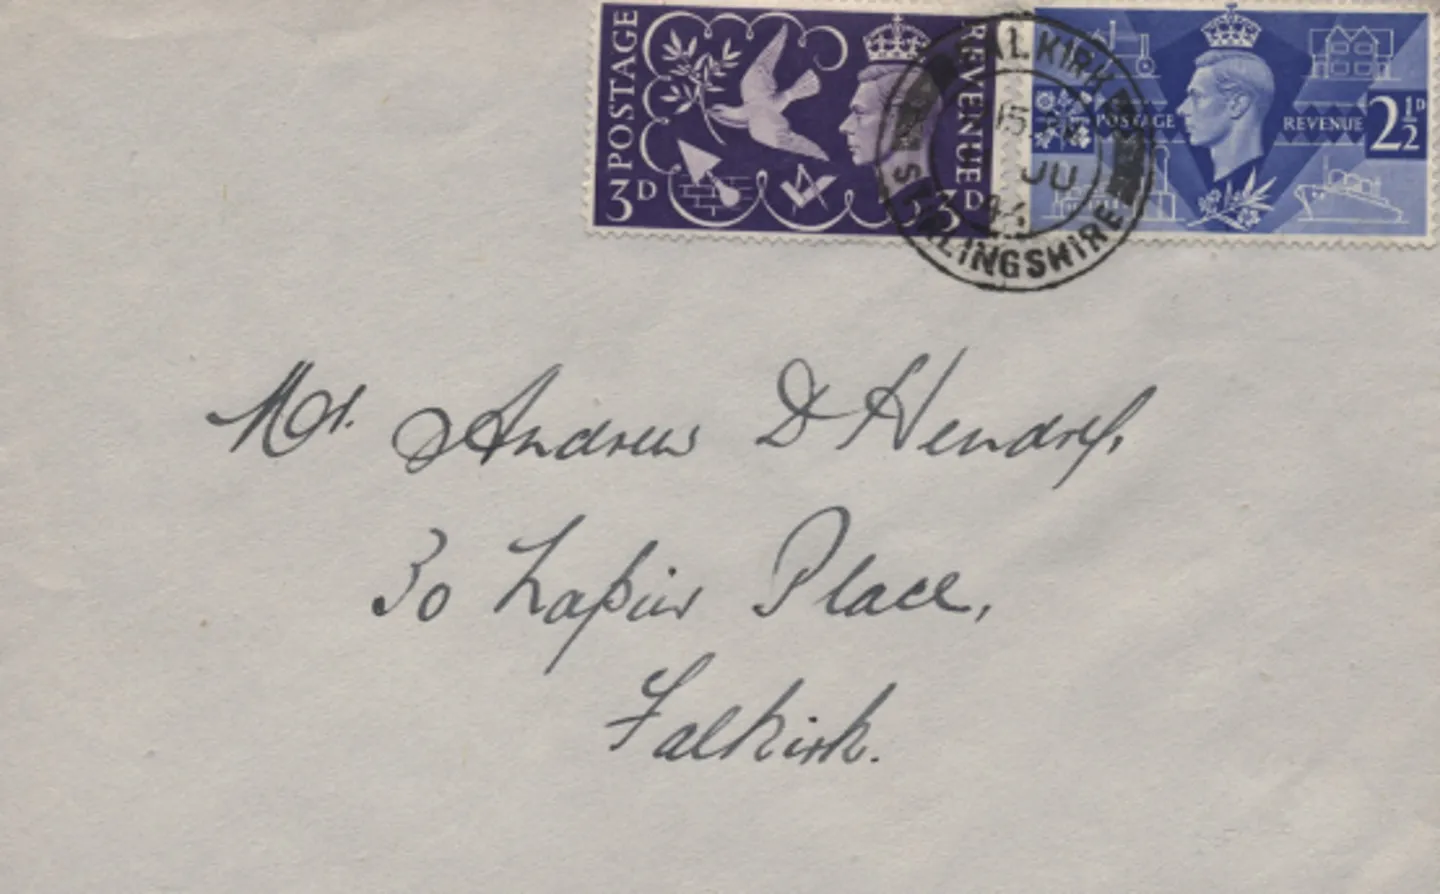 POSTAGE REVENUE 3D 3D
POSTAGE REVENUE 2½D
FALKIRK
15 JU 46
STIRLINGSHIRE
Mr. Andrew D Hendry,
30 Napier Place,
Falkirk.